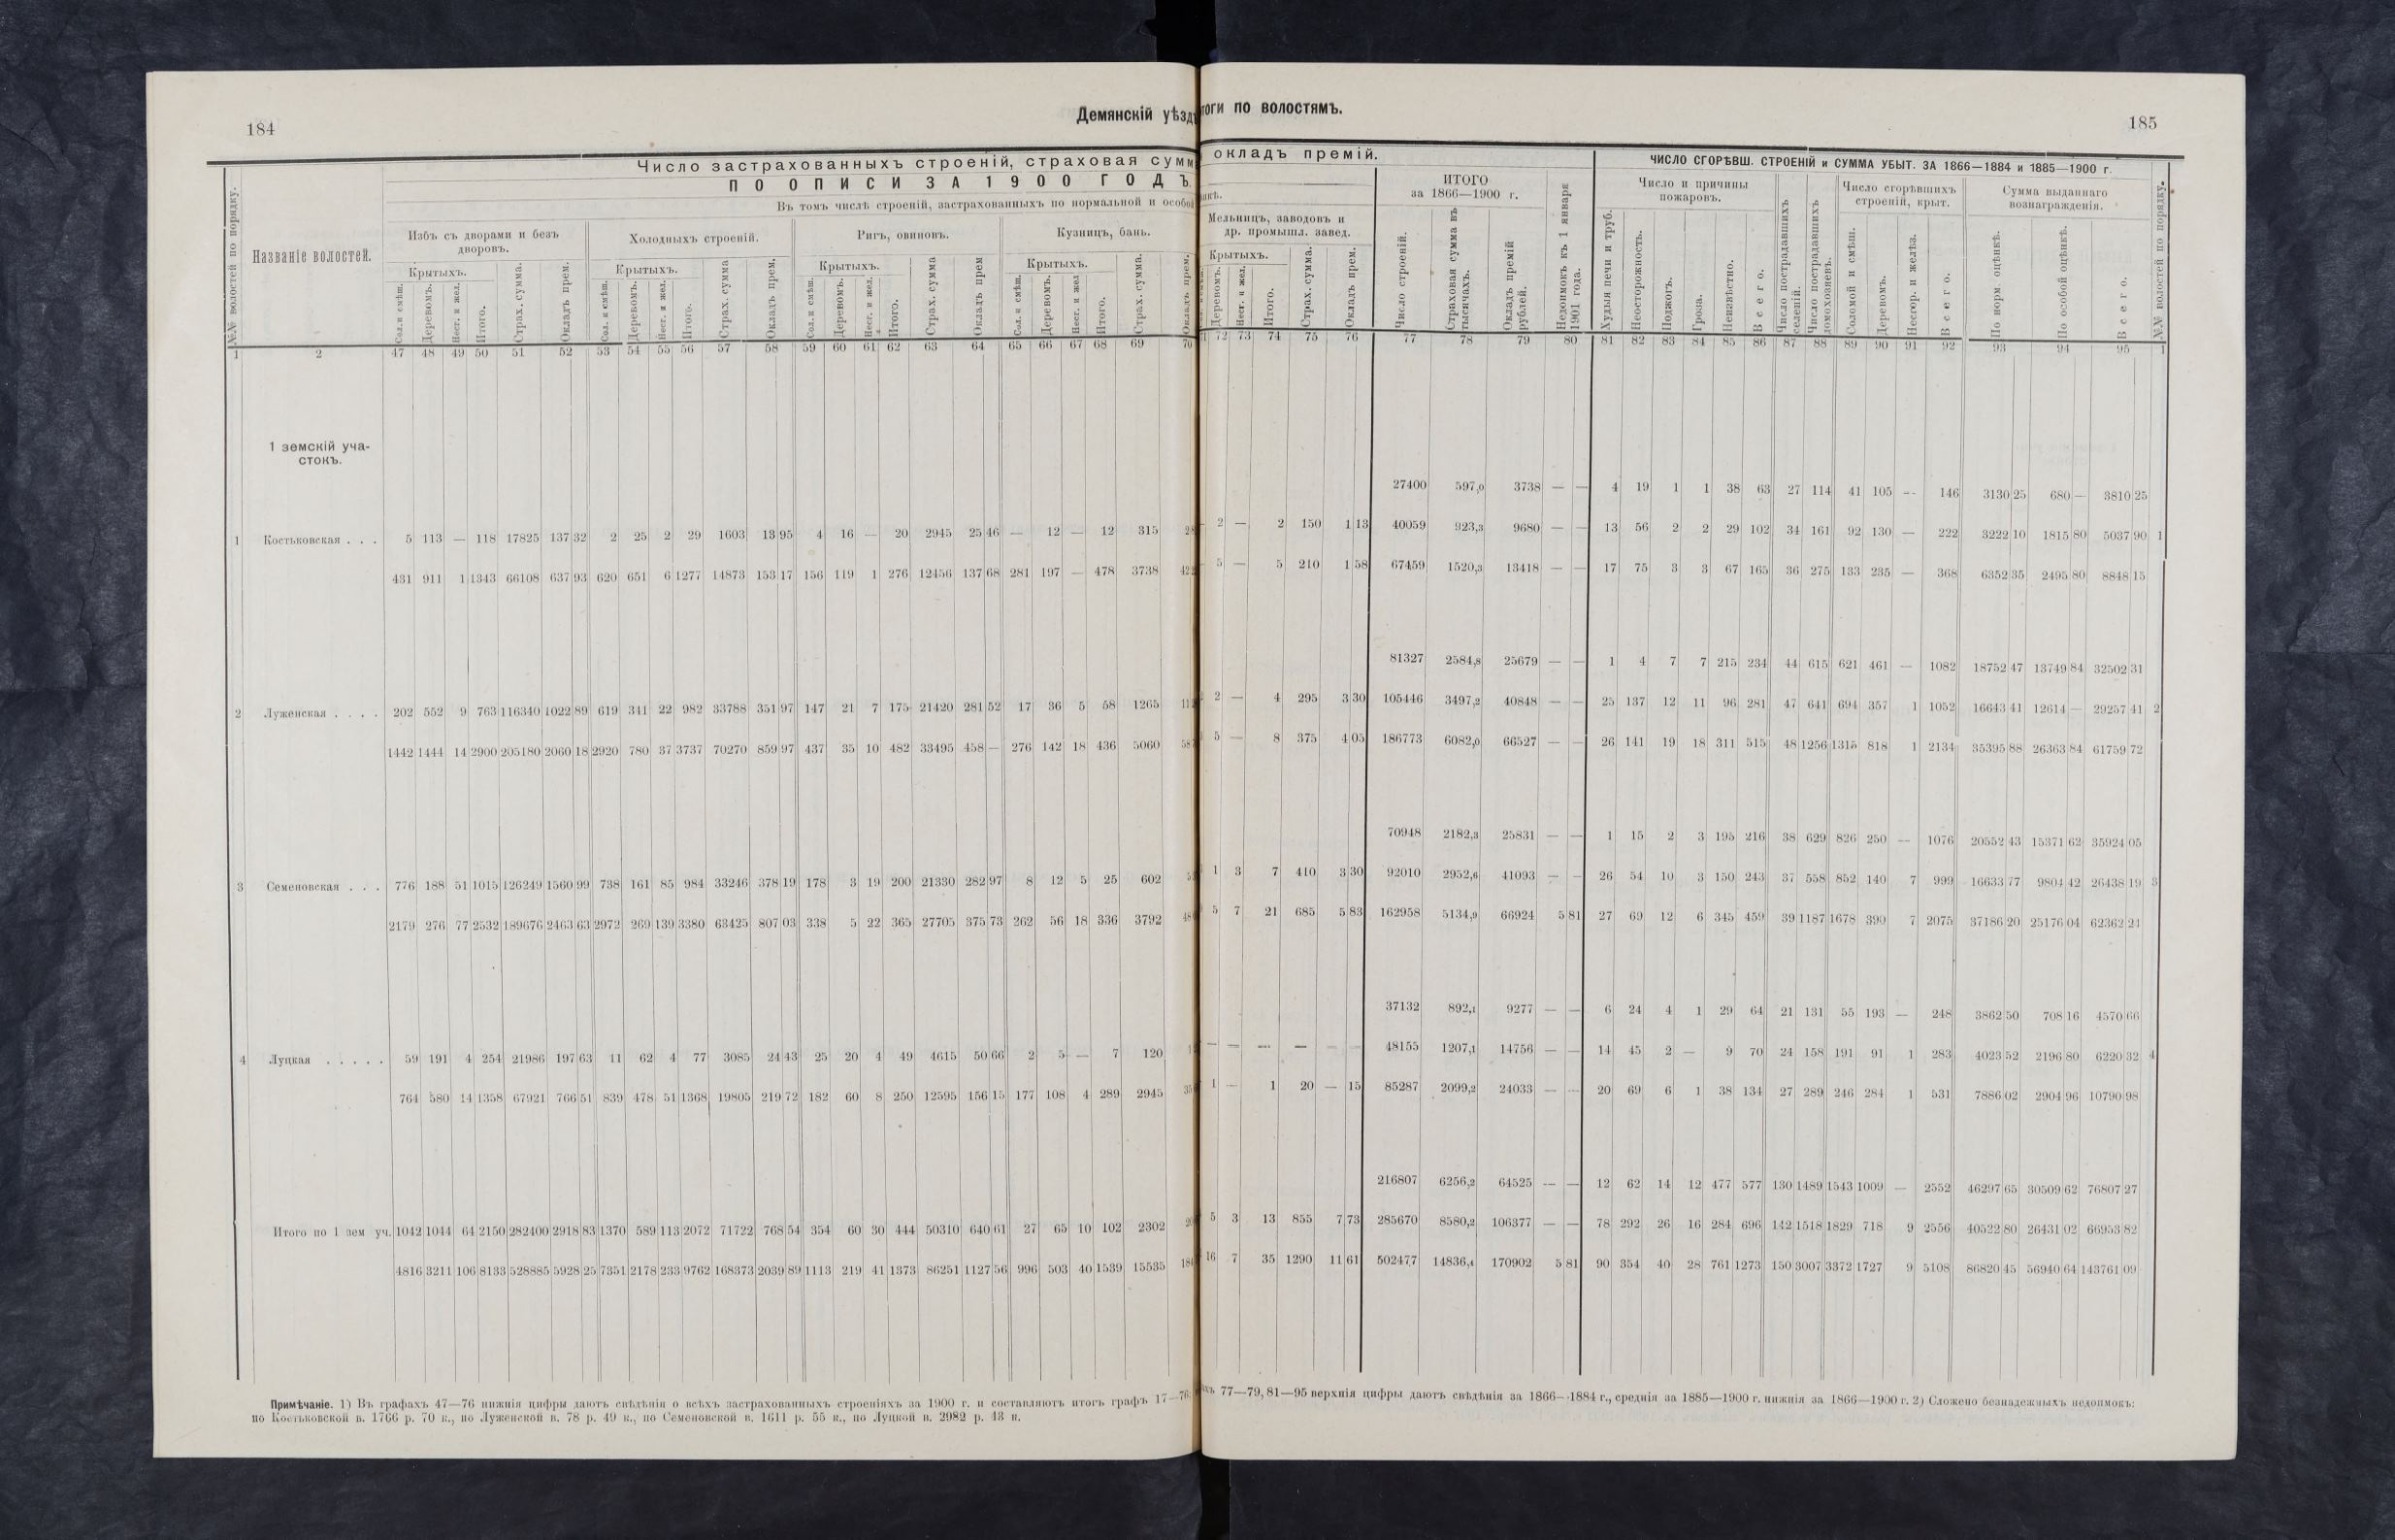 184
Демянскій уѣздъ
Число застрахованныхъ строеній, страховая сумм
ПО ОПИСИ ЗА 1900 ГОДЪ
Въ томъ числѣ строеній, застрахованныхъ по нормальной и особой
№№ волостей по порядку.
Названіе волостей.
Избъ съ дворами и безъ дворовъ.
Холодныхъ строеній.
Ригъ, овиновъ.
Кузницъ, бань.
Крытыхъ. Крытыхъ. Крытыхъ. Крытыхъ.
Сол. и смѣш. Деревомъ. Несг. и жел. Итого. Страх. сумма. Окладъ прем.
Сол. и смѣш. Деревомъ. Несг. и жел. Итого. Страх. сумма Окладъ прем.
Сол. и смѣш. Деревомъ. Несг. и жел. Итого. Страх. сумма Окладъ прем
Сол. и смѣш. Деревомъ. Несг. и жел Итого. Страх. сумма. Окладъ прем.
1 2 47 48 49 50 51 52 53 54 55 56 57 58 59 60 61 62 63 64 65 66 67 68 69 70
1 земскій уча-
стокъ.
1 Костьковская . . . 5 113 — 118 17825 137 32 2 25 2 29 1603 13 95 4 16 — 20 2945 25 46 — 12 — 12 315
431 911 1 1343 66108 637 93 620 651 6 1277 14873 153 17 156 119 1 276 12456 137 68 281 197 — 478 3738
2 Луженская . . . . 202 552 9 763 116340 1022 89 619 341 22 982 33788 351 97 147 21 7 175 21420 281 52 17 36 5 58 1265
1442 1444 14 2900 205180 2060 18 2920 780 37 3737 70270 859 97 437 35 10 482 33495 458 — 276 142 18 436 5060
3 Семеновская . . . 776 188 51 1015 126249 1560 99 738 161 85 984 33246 378 19 178 3 19 200 21330 282 97 8 12 5 25 602
2179 276 77 2532 189676 2463 63 2972 269 139 3380 63425 807 03 338 5 22 365 27705 375 73 262 56 18 336 3792
4 Луцкая . . . . . 59 191 4 254 21986 197 63 11 62 4 77 3085 24 43 25 20 4 49 4615 50 66 2 5 — 7 120
764 580 14 1358 67921 766 51 839 478 51 1368 19805 219 72 182 60 8 250 12595 156 15 177 108 4 289 2945
Итого по 1 зем уч. 1042 1044 64 2150 282400 2918 83 1370 589 113 2072 71722 768 54 354 60 30 444 50310 640 61 27 65 10 102 2302
4816 3211 106 8133 528885 5928 25 7351 2178 233 9762 168373 2039 89 1113 219 41 1373 86251 1127 56 996 503 40 1539 15535
Примѣчаніе. 1) Въ графахъ 47—76 нижнія цифры даютъ свѣдѣнія о всѣхъ застрахованныхъ строеніяхъ за 1900 г. и составляютъ итогъ графъ 17—76;
по Костьковской в. 1766 р. 70 к., по Луженской в. 78 р. 49 к., по Семеновской в. 1611 р. 55 к., по Луцкой в. 2982 р. 43 к.
тоги по волостямъ.
185
окладъ премій.
Мельницъ, заводовъ и др. промышл. завед.
Крытыхъ.
Деревомъ. Несг. и жел. Итого. Страх. сумма. Окладъ прем.
ИТОГО
за 1866—1900 г.
Число строеній. Страховая сумма въ тысячахъ. Окладъ премій рублей.
Недоимокъ къ 1 января 1901 года.
ЧИСЛО СГОРѢВШ. СТРОЕНІЙ и СУММА УБЫТ. ЗА 1866—1884 и 1885—1900 г.
Число и причины пожаровъ.
Худыя печи и труб. Неосторожность. Поджогъ. Гроза. Неизвѣстно. Всего.
Число пострадавшихъ селеній. Число пострадавшихъ домохозяевъ.
Число сгорѣвшихъ строеній, крыт.
Соломой и смѣш. Деревомъ. Несгор. и желѣз. Всего.
Сумма выданнаго вознагражденія.
По норм. оцѣнкѣ. По особой оцѣнкѣ. Всего.
№№ волостей по порядку.
72 73 74 75 76 77 78 79 80 81 82 83 84 85 86 87 88 89 90 91 92 93 94 95 1
27400 597,0 3738 — — 4 19 1 1 38 63 27 114 41 105 — 146 3130 25 680 — 3810 25
2 — 2 150 1 13 40059 923,3 9680 — — 13 56 2 2 29 102 34 161 92 130 — 222 3222 10 1815 80 5037 90 1
5 — 5 210 1 58 67459 1520,3 13418 — — 17 75 3 3 67 165 36 275 133 235 — 368 6352 35 2495 80 8848 15
81327 2584,8 25679 — — 1 4 7 7 215 234 44 615 621 461 — 1082 18752 47 13749 84 32502 31
2 — 4 295 3 30 105446 3497,2 40848 — — 25 137 12 11 96 281 47 641 694 357 1 1052 16643 41 12614 — 29257 41 2
5 — 8 375 4 05 186773 6082,0 66527 — — 26 141 19 18 311 515 48 1256 1315 818 1 2134 35395 88 26363 84 61759 72
70948 2182,3 25831 — — 1 15 2 3 195 216 38 629 826 250 — 1076 20552 43 15371 62 35924 05
1 3 7 410 3 30 92010 2952,6 41093 — — 26 54 10 3 150 243 37 558 852 140 7 999 16633 77 9804 42 26438 19 3
5 7 21 685 5 83 162958 5134,9 66924 5 81 27 69 12 6 345 459 39 1187 1678 390 7 2075 37186 20 25176 04 62362 24
37132 892,1 9277 — — 6 24 4 1 29 64 21 131 55 193 — 248 3862 50 708 16 4570 66
— — — — — 48155 1207,1 14756 — — 14 45 2 — 9 70 24 158 191 91 1 283 4023 52 2196 80 6220 32 4
1 — 1 20 — 15 85287 2099,2 24033 — — 20 69 6 1 38 134 27 289 246 284 1 531 7886 02 2904 96 10790 98
216807 6256,2 64525 — — 12 62 14 12 477 577 130 1489 1543 1009 — 2552 46297 65 30509 62 76807 27
5 3 13 855 7 73 285670 8580,2 106377 — — 78 292 26 16 284 696 142 1518 1829 718 9 2556 40522 80 26431 02 66953 82
16 7 35 1290 11 61 502477 14836,4 170902 5 81 90 354 40 28 761 1273 150 3007 3372 1727 9 5108 86820 45 56940 64 143761 09
77—79, 81—95 верхнія цифры даютъ свѣдѣнія за 1866—1884 г., среднія за 1885—1900 г. нижнія за 1866—1900 г. 2) Сложено безнадежныхъ недоимокъ: